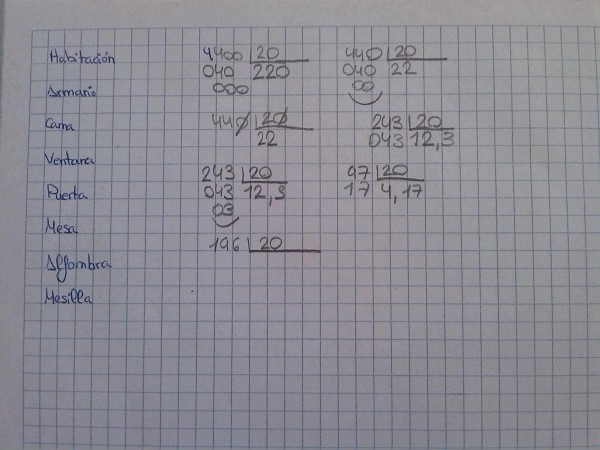 Habitación 4400 20 440 20
040 220 040 22
Armario 000 00
Cama 440 20 243 20
22 043 12,3
Ventana
243 20 97 20
Puerta 043 12,3 17 4,17
03
Mesa
196 20
Alfombra
Mesilla